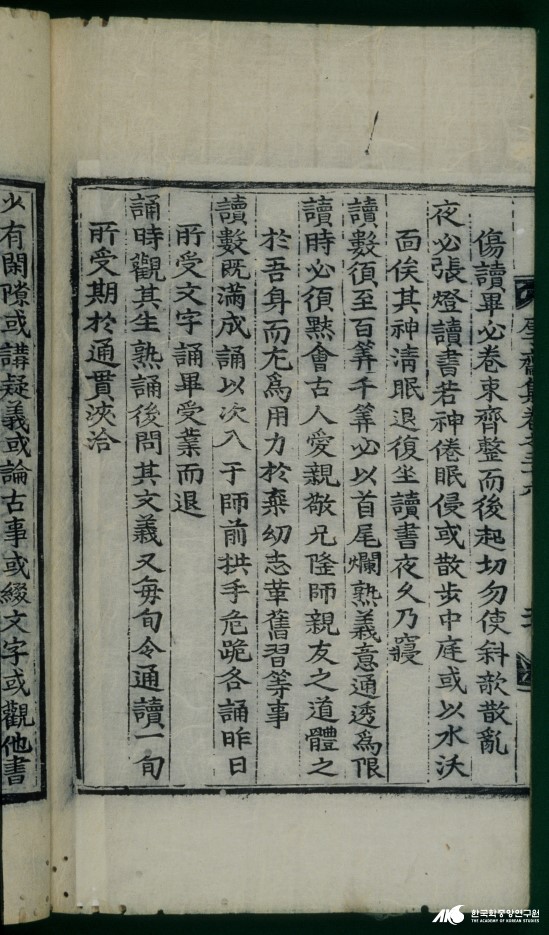 厚齋集卷之三十
傷讀畢必卷束齊整而後起切勿使斜欹散亂
夜必張燈讀書若神倦眠侵或散步中庭或以水沃
面俟其神淸眠退復坐讀書夜久乃寢
讀數須至百筭千筭必以首尾爛熟義意通透爲限
讀時必須黙會古人愛親敬兄隆師親友之道體之
於吾身而尤爲用力於棄幼志革舊習等事
讀數旣滿成誦以次入于師前拱手危跪各誦昨日
所受文字誦畢受業而退
誦時觀其生熟誦後問其文義又每旬令通讀一旬
所受期於通貫浹洽
少有閑隙或講疑義或論古事或綴文字或觀他書
AKS 한국학중앙연구원
THE ACADEMY OF KOREAN STUDIES